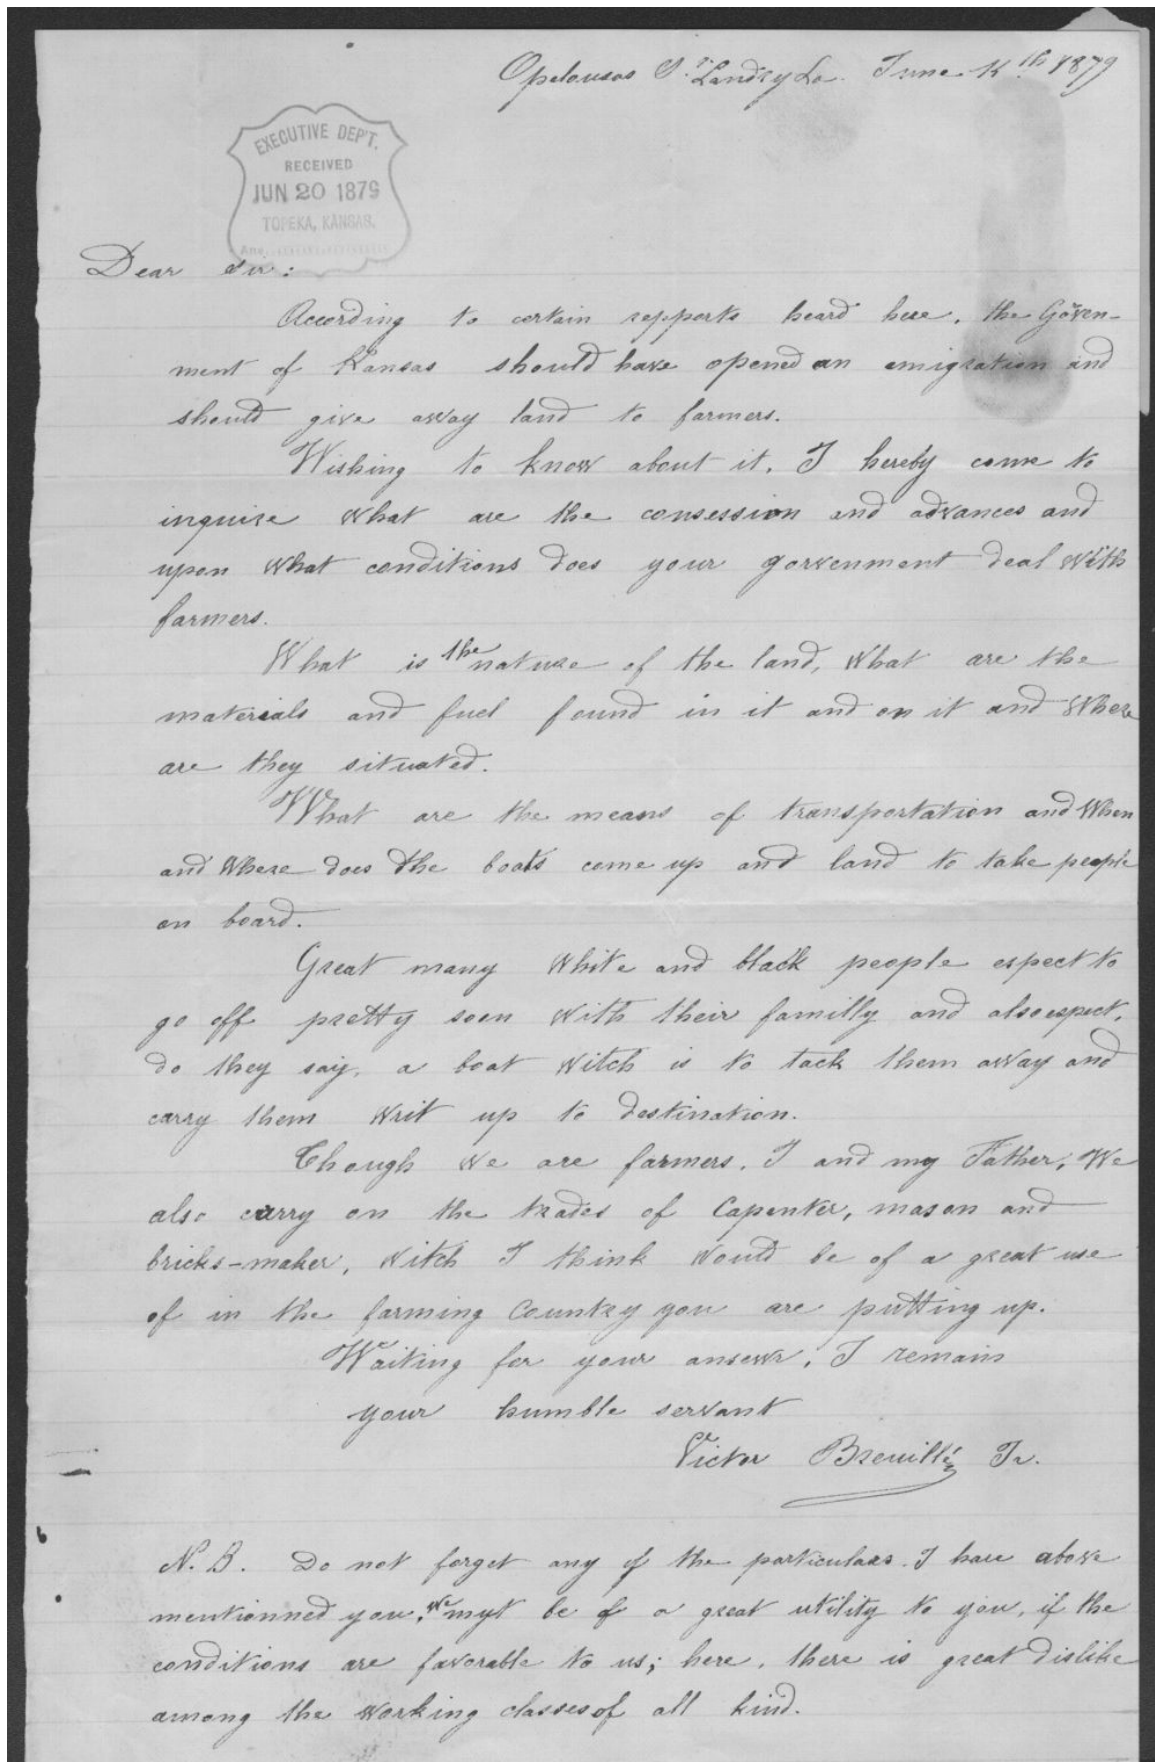 Opelousas St. Landry La. June 15th 1879
EXECUTIVE DEP'T.
RECEIVED
JUN 20 1879
TOPEKA, KANSAS.
Ans.
Dear Sir:
According to certain repports heard here, the Goven-
ment of Kansas should have opened an emigration and
should give away land to farmers.
Wishing to know about it, I hereby come to
inquire what are the consession and advances and
upon what conditions does your gorvenment deal with
farmers.
What is the nature of the land, what are the
materials and fuel found in it and on it and where
are they situated.
What are the means of transportation and when
and where does the boats come up and land to take people
on board.
Great many white and black people espect to
go off pretty soon with their familly and also espect,
do they say, a boat witch is to tack them away and
carry them writ up to destination.
Though we are farmers, I and my Father, we
also carry on the trades of Capenter, mason and
bricks-maker, witch I think would be of a great use
of in the farming Country you are putting up.
Waiting for your answer, I remain
your humble servant
Victor Breuillé, Jr.
N.B. Do not forget any of the particulars I have above
mentionned you, we myt be of a great utility to you, if the
conditions are favorable to us; here, there is great dislike
among the working classes of all kind.